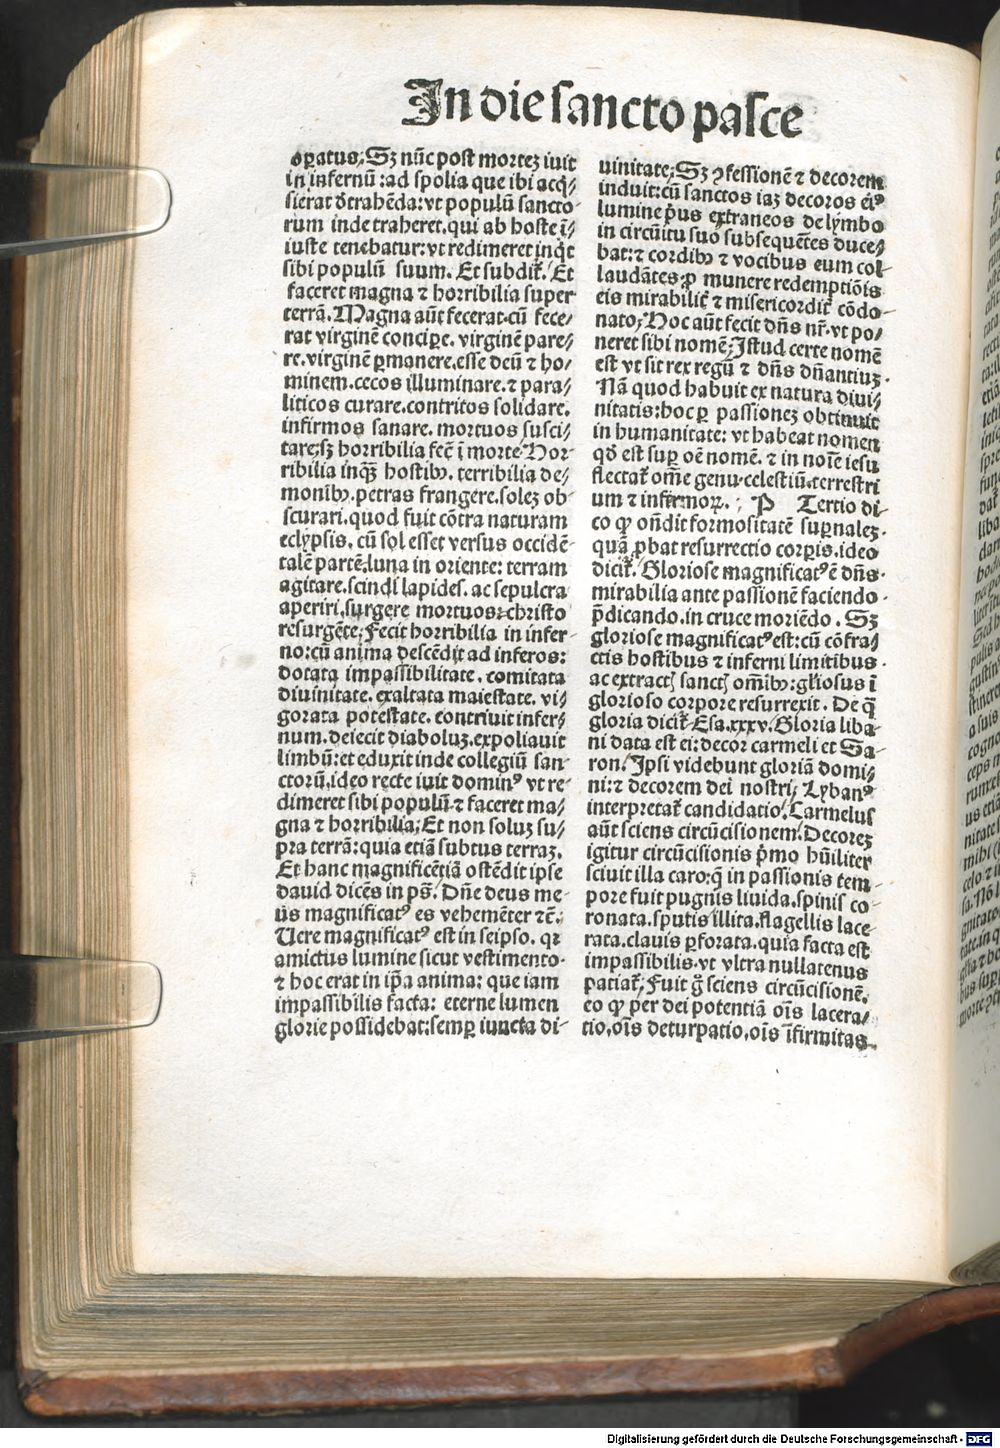 In die sancto pasce
op̄atus; Sꝫ nūc post morteꝫ iuit
in infernū :ad spolia que ibi acq̇⸗
sierat dētrahēda: vt populū sancto
rum inde traheret. qui ab hoste i⸗
iuste tenebatur: vt redimeret inq̇t
sibi populū suum. Et subdit̄. Et
faceret magna ⁊ horribilia super
terrā. Magna aūt fecerat. cū fece⸗
rat virginē concipe̱. virginē pare⸗
re. virginē ꝑmanere. esse deū ⁊ ho⸗
minem. cecos illuminare. ⁊ para⸗
liticos curare. contritos solidare.
infirmos sanare. mortuos susci⸗
tare; sꝫ horribilia fec̄ ī morte. Hor
ribilia inq̄ꝫ hostibꝰ. terribilia de⸗
monibꝰ. petras frangere. soleꝫ ob⸗
scurari. quod fuit cōtra naturam
eclypsis. cū sol esset versus occidē⸗
talē partē. luna in oriente: terram
agitare. scindi lapides. ac sepulcra
aperiri. surgere mortuos: christo
resurgēte; Fecit horribilia in infer⸗
no: cū anima descēdit ad inferos:
dotata impassibilitate. comitata
diuinitate. exaltata maiestate. vi⸗
gorata potestate. contriuit infer⸗
num. deiecit diaboluꝫ. expoliauit
limbū: et eduxit inde collegiū san⸗
ctorū. ideo recte iuit dominꝰ vt re⸗
dimeret sibi populū ⁊ faceret ma⸗
gna ⁊ horribilia; Et non soluꝫ su⸗
pra terrā: quia etiā subtus terraꝫ.
Et hanc magnificētiā ostēdit ipse
dauid dicēs in ps̄. Dn̄e deus me⸗
us magnificatꝰ es vehemēter ⁊c̄.;
Uere magnificatꝰ est in seipso. qꝛ
amictus lumine sicut vestimento.
⁊ hoc erat in ip̄a anima: que iam
impassibilis facta: eterne lumen
glorie possidebat: semꝑ iuncta di⸗
uinitate; Sꝫ ꝯfessionē ⁊ decorem
induit: cū sanctos iaꝫ decoros eiꝰ
lumine pr̄us extraneos de lymbo
in circūitu suo subsequētes duce⸗
bat: ⁊ cordibꝰ ⁊ vocibus eum col⸗
laudātes. ꝓ munere redemptiōis
eis mirabilit̄ ⁊ misericordit̄ cōdo⸗
nato; Hoc aūt fecit dn̄s nr̄. vt po⸗
neret sibi nomē; Istud certe nomē
est vt sit rex regū ⁊ dn̄s dn̄antiuꝫ.
Nā quod habuit ex natura diui⸗
nitatis: hoc ꝑ passioneꝫ obtinuit
in humanitate: vt habeat nomen
qd̄ est suꝑ oē nomē. ⁊ in noīe iesu
flectat̄ om̄e genu. celestiū. terrestri
um ⁊ infernoꝝ. ; P Tertio di⸗
co ꝙ on̄dit formositatē suꝑnaleꝫ.
quā ꝓbat resurrectio corꝑis. ideo
dicit̄. Gloriose magnificatꝰ ē dn̄s.
mirabilia ante passionē faciendo.
p̄dicando. in cruce moriēdo. Sꝫ
gloriose magnificatꝰ est: cū cōfra⸗
ctis hostibus ⁊ inferni limitibus.
ac extractꝭ sanctꝭ om̄ibꝰ: gl̄iosus ī
glorioso corpore resurrexit. De q̄
gloria dicit̄ Esa. xxxv. Gloria liba⸗
ni data est ei: decor carmeli et Sa⸗
ron. Ipsi videbunt gloriā domi⸗
ni: ⁊ decorem dei nostri; Lybanꝰ
interpretat̄ candidatio. Carmelus
aūt sciens circūcisionem. Decoreꝫ
igitur circūcisionis pͥmo hūiliter
sciuit illa caro: q̄ in passionis tem⸗
pore fuit pugnis liuida. spinis co⸗
ronata. sputis illita. flagellis lace⸗
rata. clauis ꝑforata. quia facta est
impassibilis. vt vltra nullatenus
patiat̄; Fuit gͦ sciens circūcisionē.
eo ꝙ per dei potentiā oīs lacera⸗
tio. oīs deturpatio. oīs īfirmitas
Digitalisierung gefördert durch die Deutsche Forschungsgemeinschaft - DFG